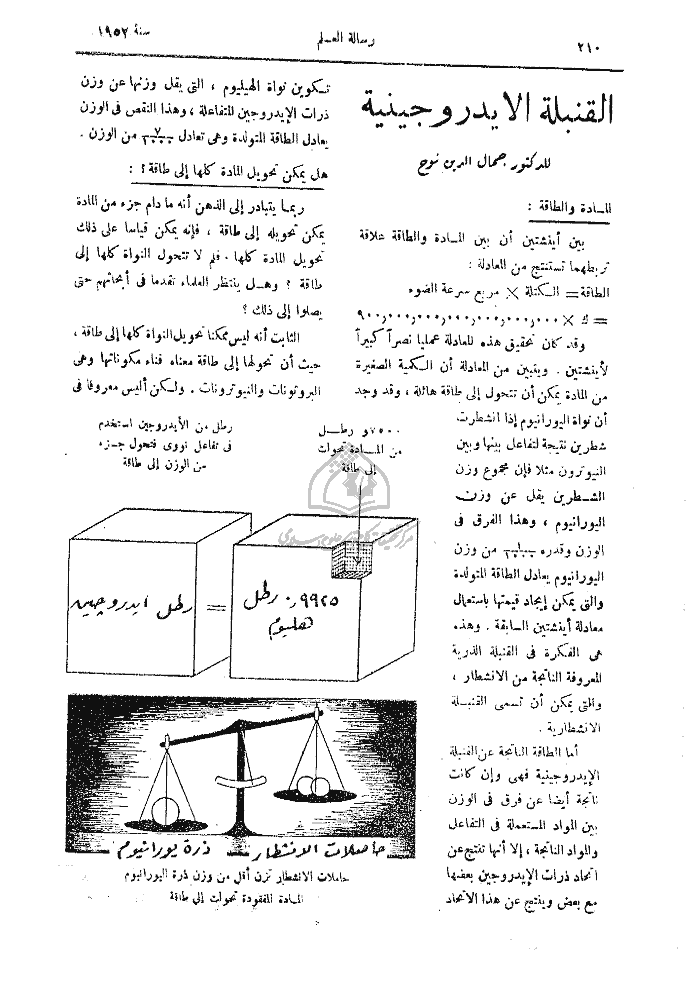 ٢١٠
رسالة العلم
سنة ١٩٥٢
القنبلة الايدروجينية
للدكتور جمال الدين نوح
المادة والطاقة :
بين أينشتين أن بين المادة والطاقة علاقة
تربطهما تستنتج من المعادلة :
الطاقة = الكتلة × مربع سرعة الضوء
= ك × ٩٠٠,٠٠٠,٠٠٠,٠٠٠,٠٠٠,٠٠٠,٠٠٠
وقد كان تحقيق هذه المعادلة عمليا نصراً كبيراً
لأينشتين . ويتبين من المعادلة أن الكمية الصغيرة
من المادة يمكن أن تتحول إلى طاقة هائلة ، وقد وجد
أن نواة اليورانيوم إذا انشطرت
شطرين نتيجة لتفاعل بينها وبين
النيوترون مثلا فإن مجموع وزن
الشطرين يقل عن وزن
اليورانيوم ، وهذا الفرق فى
الوزن وقدره من وزن
اليورانيوم يعادل الطاقة المتولدة
والتى يمكن إيجاد قيمتها باستعمال
معادلة أينشتين السابقة . وهذه
هى الفكرة فى القنبلة الذرية
المعروفة الناتجة من الانشطار ،
والتى يمكن أن تسمى القنبلة
الانشطارية .
أما الطاقة الناتجة عن القنبلة
الإيدروجينية فهى وإن كانت
ناتجة أيضا عن فرق فى الوزن
بين المواد المستعملة فى التفاعل
والمواد الناتجة ، إلا أنها تنتج عن
اتحاد ذرات الإيدروجين بعضها
مع بعض وينتج عن هذا الاتحاد
تكوين نواة الهيليوم ، التى يقل وزنها عن وزن
ذرات الإيدروجين المتفاعلة ، وهذا النقص فى الوزن
يعادل الطاقة المتولدة وهى تعادل من الوزن .
هل يمكن تحويل المادة كلها إلى طاقة ؟ :
ربما يتبادر إلى الذهن أنه ما دام جزء من المادة
يمكن تحويله إلى طاقة ، فإنه يمكن قياسا على ذلك
تحويل المادة كلها . فلم لا تتحول النواة كلها إلى
طاقة ؟ وهل ينتظر العلماء تقدما فى أبحاثهم حتى
يصلوا إلى ذلك ؟
الثابت أنه ليس ممكنا تحويل النواة كلها إلى طاقة ،
حيث أن تحولها إلى طاقة معناه فناء مكوناتها وهى
البروتونات والنيوترونات . ولكن أليس معروفا فى
٠٠٧٥و رطل
من المادة تحولت
إلى طاقة
رطل من الأيدروجين استخدم
فى تفاعل نووى فتحول جزء
من الوزن إلى طاقة
رطل ايدروجين
=
٠٫٩٩٢٥ رطل
هليوم
حاصلات الانشطار
ذرة يورانيوم
حاصلات الانشطار تزن أقل من وزن ذرة اليورانيوم
المادة المفقودة تحولت إلى طاقة